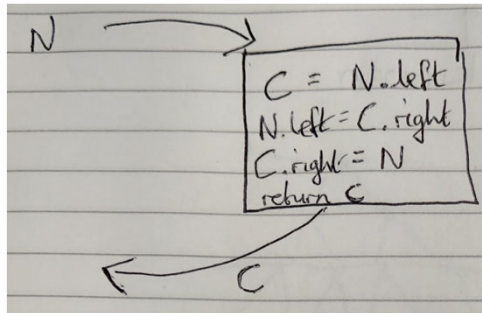 N
C = N.left
N.left = C.right
C.right = N
return C
C